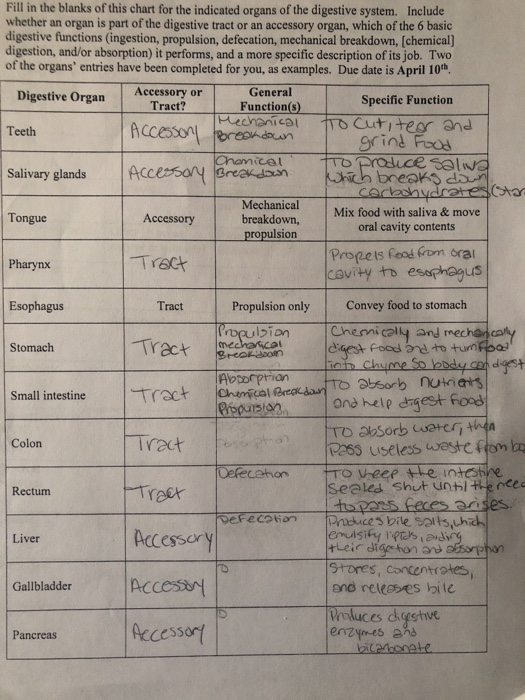 Fill in the blanks of this chart for the indicated organs of the digestive system. Include
whether an organ is part of the digestive tract or an accessory organ, which of the 6 basic
digestive functions (ingestion, propulsion, defecation, mechanical breakdown, [chemical]
digestion, and/or absorption) it performs, and a more specific description of its job. Two
of the organs' entries have been completed for you, as examples. Due date is April 10th.
Digestive Organ
Accessory or
Tract?
General
Function(s)
Specific Function
Teeth
Accessory
Mechanical
Breakdown
To cut, tear and
grind Food
Salivary glands
Accessory
Chamical
Breakdown
To produce saliva
which breaks down
carbohydrates (star
Tongue
Accessory
Mechanical
breakdown,
propulsion
Mix food with saliva & move
oral cavity contents
Pharynx
Tract
Propels food from oral
cavity to esophagus
Esophagus
Tract
Propulsion only
Convey food to stomach
Stomach
Tract
Propulsion
mechanical
Breakdown
Chemically and mechanically
digest food and to turn food
into chyme so body can digest
Small intestine
Tract
Absorption
Chemical Breakdown
Propulsion
To absorb nutrients
and help digest food
Colon
Tract
To absorb water, then
pass useless waste from
Rectum
Tract
Defecation
To keep the intestine
sealed shut until the need
to pass feces arises.
Liver
Accessory
Defecation
Produces bile salts, which
emulsify lipids, aiding
their digestion and absorption
Gallbladder
Accessory
Stores, concentrates,
and releases bile
Pancreas
Accessory
Produces digestive
enzymes and
bicarbonate